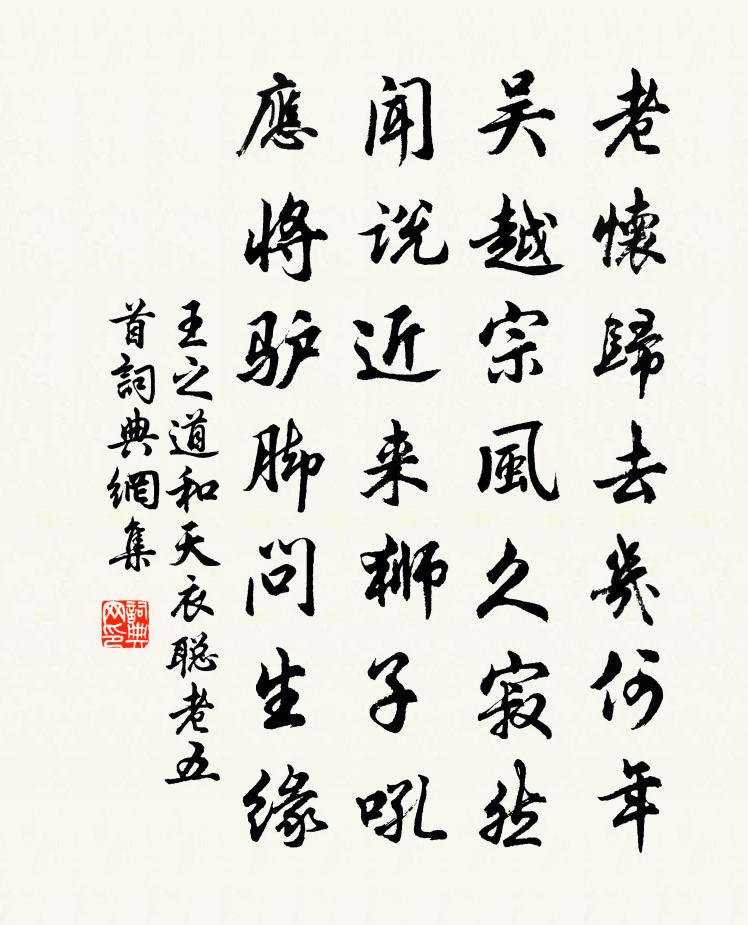 老懷歸去幾何年
吴越宗風久寂然
闻说近来獅子吼
應将驴脚问生緣
王之道和天衣聪老五
首詞典網集
詞典
网印